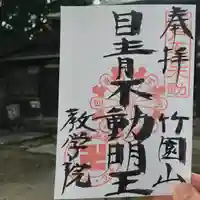 奉拝
竹園山
目青不動明王
教学院